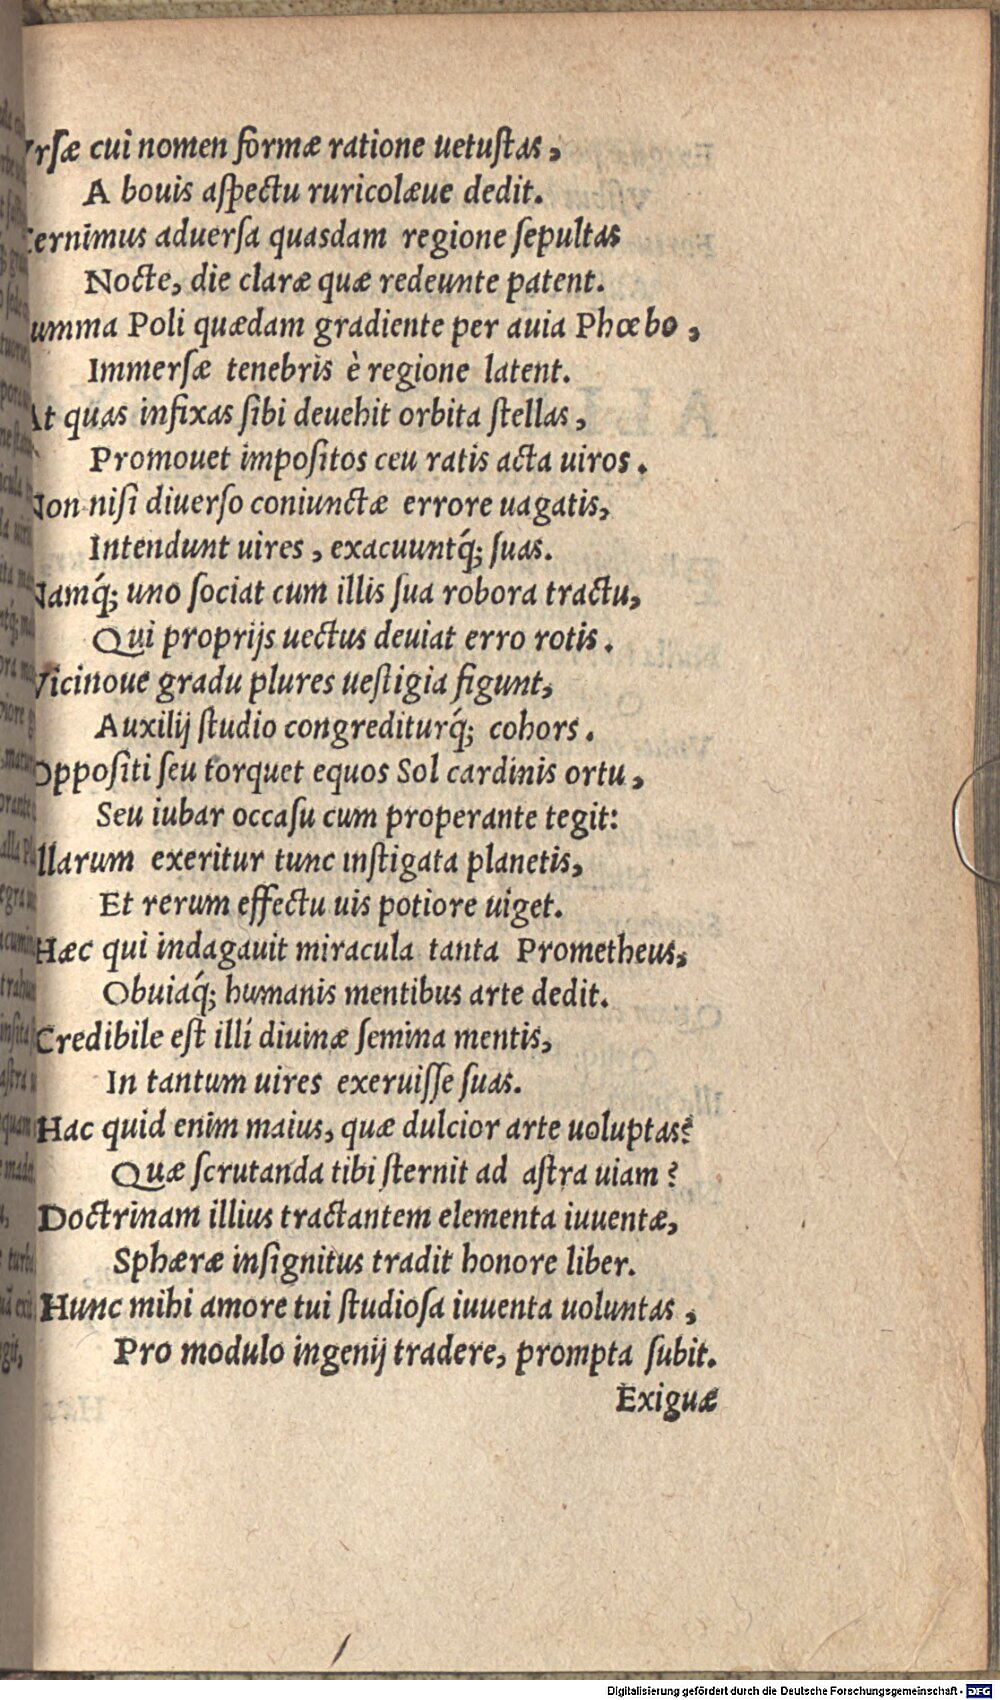 Vrſæ cui nomen formæ ratione uetuſtas,
A bouis aſpectu ruricolæue dedit.
Cernimus aduerſa quasdam regione ſepultas
Nocte, die claræ quæ redeunte patent.
umma Poli quædam gradiente per auia Phœbo,
Immerſæ tenebris è regione latent.
At quas infixas ſibi deuehit orbita ſtellas,
Promouet impoſitos ceu ratis acta uiros.
Non niſi diuerſo coniunctæ errore uagatis,
Intendunt uires, exacuuntq́; ſuas.
Namq́; uno ſociat cum illis ſua robora tractu,
Qui proprijs uectus deuiat erro rotis.
Vicinoue gradu plures ueſtigia figunt,
Auxilij ſtudio congrediturq́; cohors.
Oppoſiti ſeu torquet equos Sol cardinis ortu,
Seu iubar occaſu cum properante tegit:
Illarum exeritur tunc inſtigata planetis,
Et rerum effectu uis potiore uiget.
Hæc qui indagauit miracula tanta Prometheus,
Obuiaq́; humanis mentibus arte dedit.
Credibile eſt illi diuinæ ſemina mentis,
In tantum uires exeruiſſe ſuas.
Hac quid enim maius, quæ dulcior arte uoluptas?
Quæ ſcrutanda tibi ſternit ad aſtra uiam?
Doctrinam illius tractantem elementa iuuentæ,
Sphæræ inſignitus tradit honore liber.
Hunc mihi amore tui ſtudioſa iuuenta uoluntas,
Pro modulo ingenij tradere, prompta ſubit.
Exiguæ
Digitalisierung gefördert durch die Deutsche Forschungsgemeinschaft - DFG